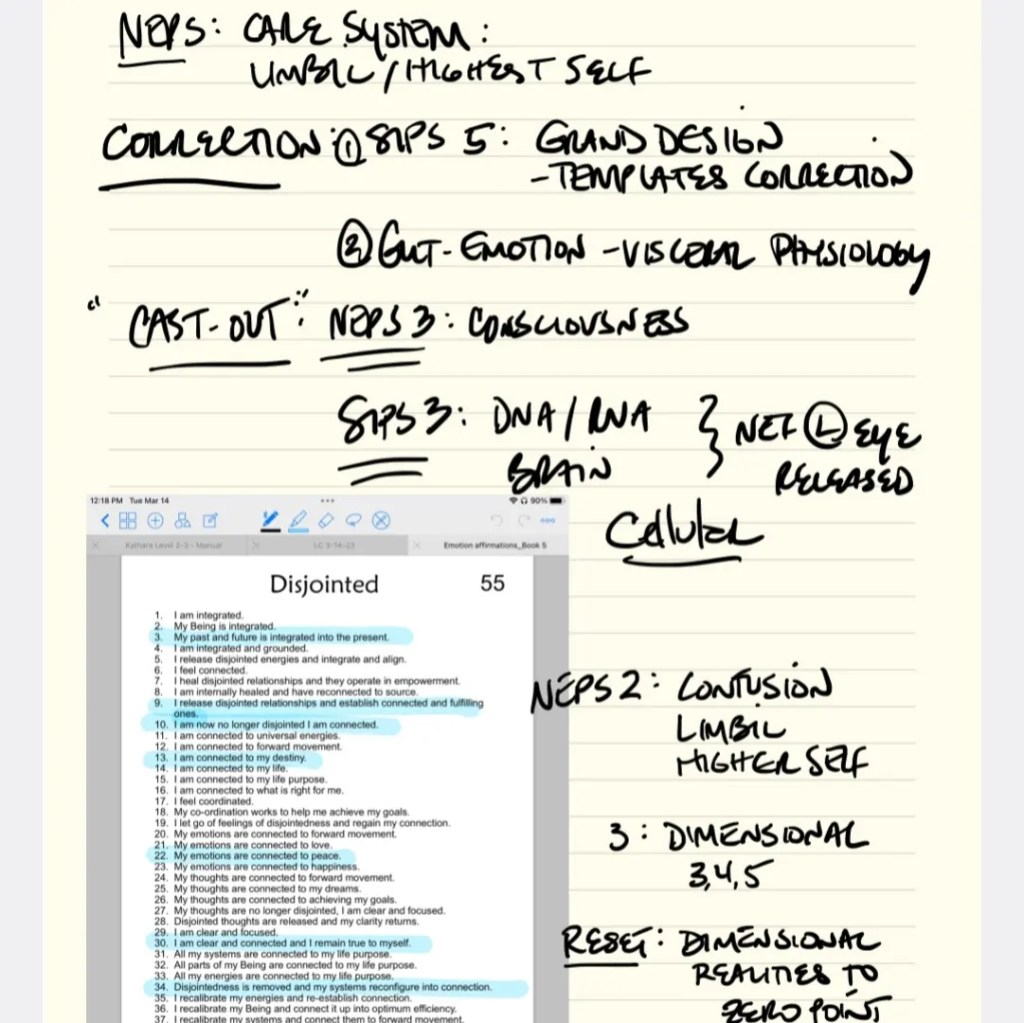 NEPS: CARE SYSTEM:
LIMBIC / HIGHEST SELF
CORRECTION: ① SIPS 5: GRAND DESIGN
- TEMPLATES CORRECTION
② GUT- EMOTION - VISCERAL PHYSIOLOGY
"CAST-OUT": NEPS 3: CONSCIOUSNESS
SIPS 3: DNA / RNA
BRAIN
} NET Ⓛ EYE
RELEASED
Cellular
12:18 PM Tue Mar 14
90%
Kathara Level 2-3 - Manual
LC 3-14-23
Emotion affirmations_Book 5
Disjointed 55
1. I am integrated.
2. My Being is integrated.
3. My past and future is integrated into the present.
4. I am integrated and grounded.
5. I release disjointed energies and integrate and align.
6. I feel connected.
7. I heal disjointed relationships and they operate in empowerment.
8. I am internally healed and have reconnected to source.
9. I release disjointed relationships and establish connected and fulfilling
ones.
10. I am now no longer disjointed I am connected.
11. I am connected to universal energies.
12. I am connected to forward movement.
13. I am connected to my destiny.
14. I am connected to my life.
15. I am connected to my life purpose.
16. I am connected to what is right for me.
17. I feel coordinated.
18. My co-ordination works to help me achieve my goals.
19. I let go of feelings of disjointedness and regain my connection.
20. My emotions are connected to forward movement.
21. My emotions are connected to love.
22. My emotions are connected to peace.
23. My emotions are connected to happiness.
24. My thoughts are connected to forward movement.
25. My thoughts are connected to my dreams.
26. My thoughts are connected to achieving my goals.
27. My thoughts are no longer disjointed, I am clear and focused.
28. Disjointed thoughts are released and my clarity returns.
29. I am clear and focused.
30. I am clear and connected and I remain true to myself.
31. All my systems are connected to my life purpose.
32. All parts of my Being are connected to my life purpose.
33. All my energies are connected to my life purpose.
34. Disjointedness is removed and my systems reconfigure into connection.
35. I recalibrate my energies and re-establish connection.
36. I recalibrate my Being and connect it up into optimum efficiency.
37. I recalibrate my systems and connect them to forward movement.
NEPS 2: CONFUSION
LIMBIC
HIGHER SELF
3: DIMENSIONAL
3,4,5
RESET: DIMENSIONAL
REALITIES TO
ZERO POINT